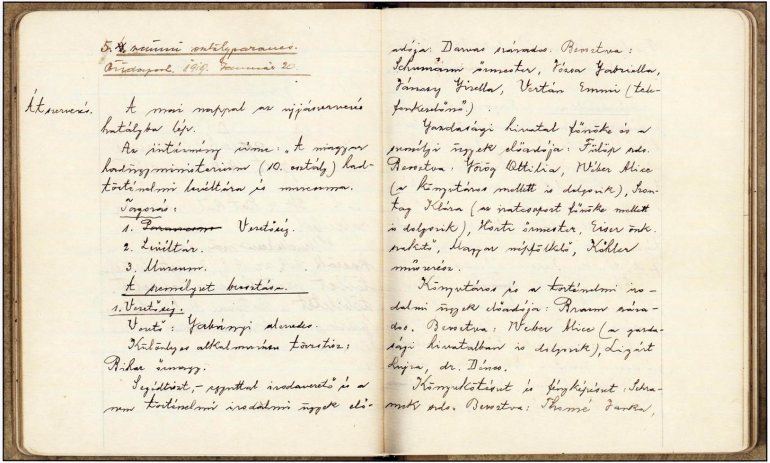 5. számú osztályparancs.
Budapest, 1919. Január 20.
Átszervezés.
A mai nappal az ujjászervezés
hatályba lép.
Az intézmény címe: „A magyar
hadügyministerium (10. osztály) had-
történelmi levéltára és muzeuma.
Tagozás:
1. Parancsn Vezetőség.
2. Levéltár.
3. Muzeum.
A személyzet beosztása.
1. Vezetőség.
Vezető: Gabányi alezredes.
Különleges alkalmazásu törzstiszt:
Bihar őrnagy.
Segédtiszt, egyuttal irodavezető és a
nem történelmi irodalmi ügyek elő-
adója: Darvas százados. Beosztva:
Schumann őrmester, Józsa Gabriella,
Jánossy Gizella, Vertán Emmi (tele-
fonkezelőnő).
Gazdasági hivatal főnöke és a
személyi ügyek előadója: Fülöp szds.
Beosztva: Vörög Ottilia, Wéber Alice
(a könyvtáros mellett is dolgozik), Szon-
tag Klára (az iratcsoport főnöke mellett
is dolgozik), Horti őrmester, Eiser önk.
szakvő, Magyar népfölkelő, Köhler
műszerész.
Könyvtáros és a történelmi iro-
dalmi ügyek előadója: Braun száza-
dos. Beosztva: Weber Alice (a gazda-
sági hivatalban is dolgozik), Ligárt
Lujza, dr. Dénes.
Könyvkötészet és fényképészet: Schra-
mek szds. Beosztva: Thomé Janka,